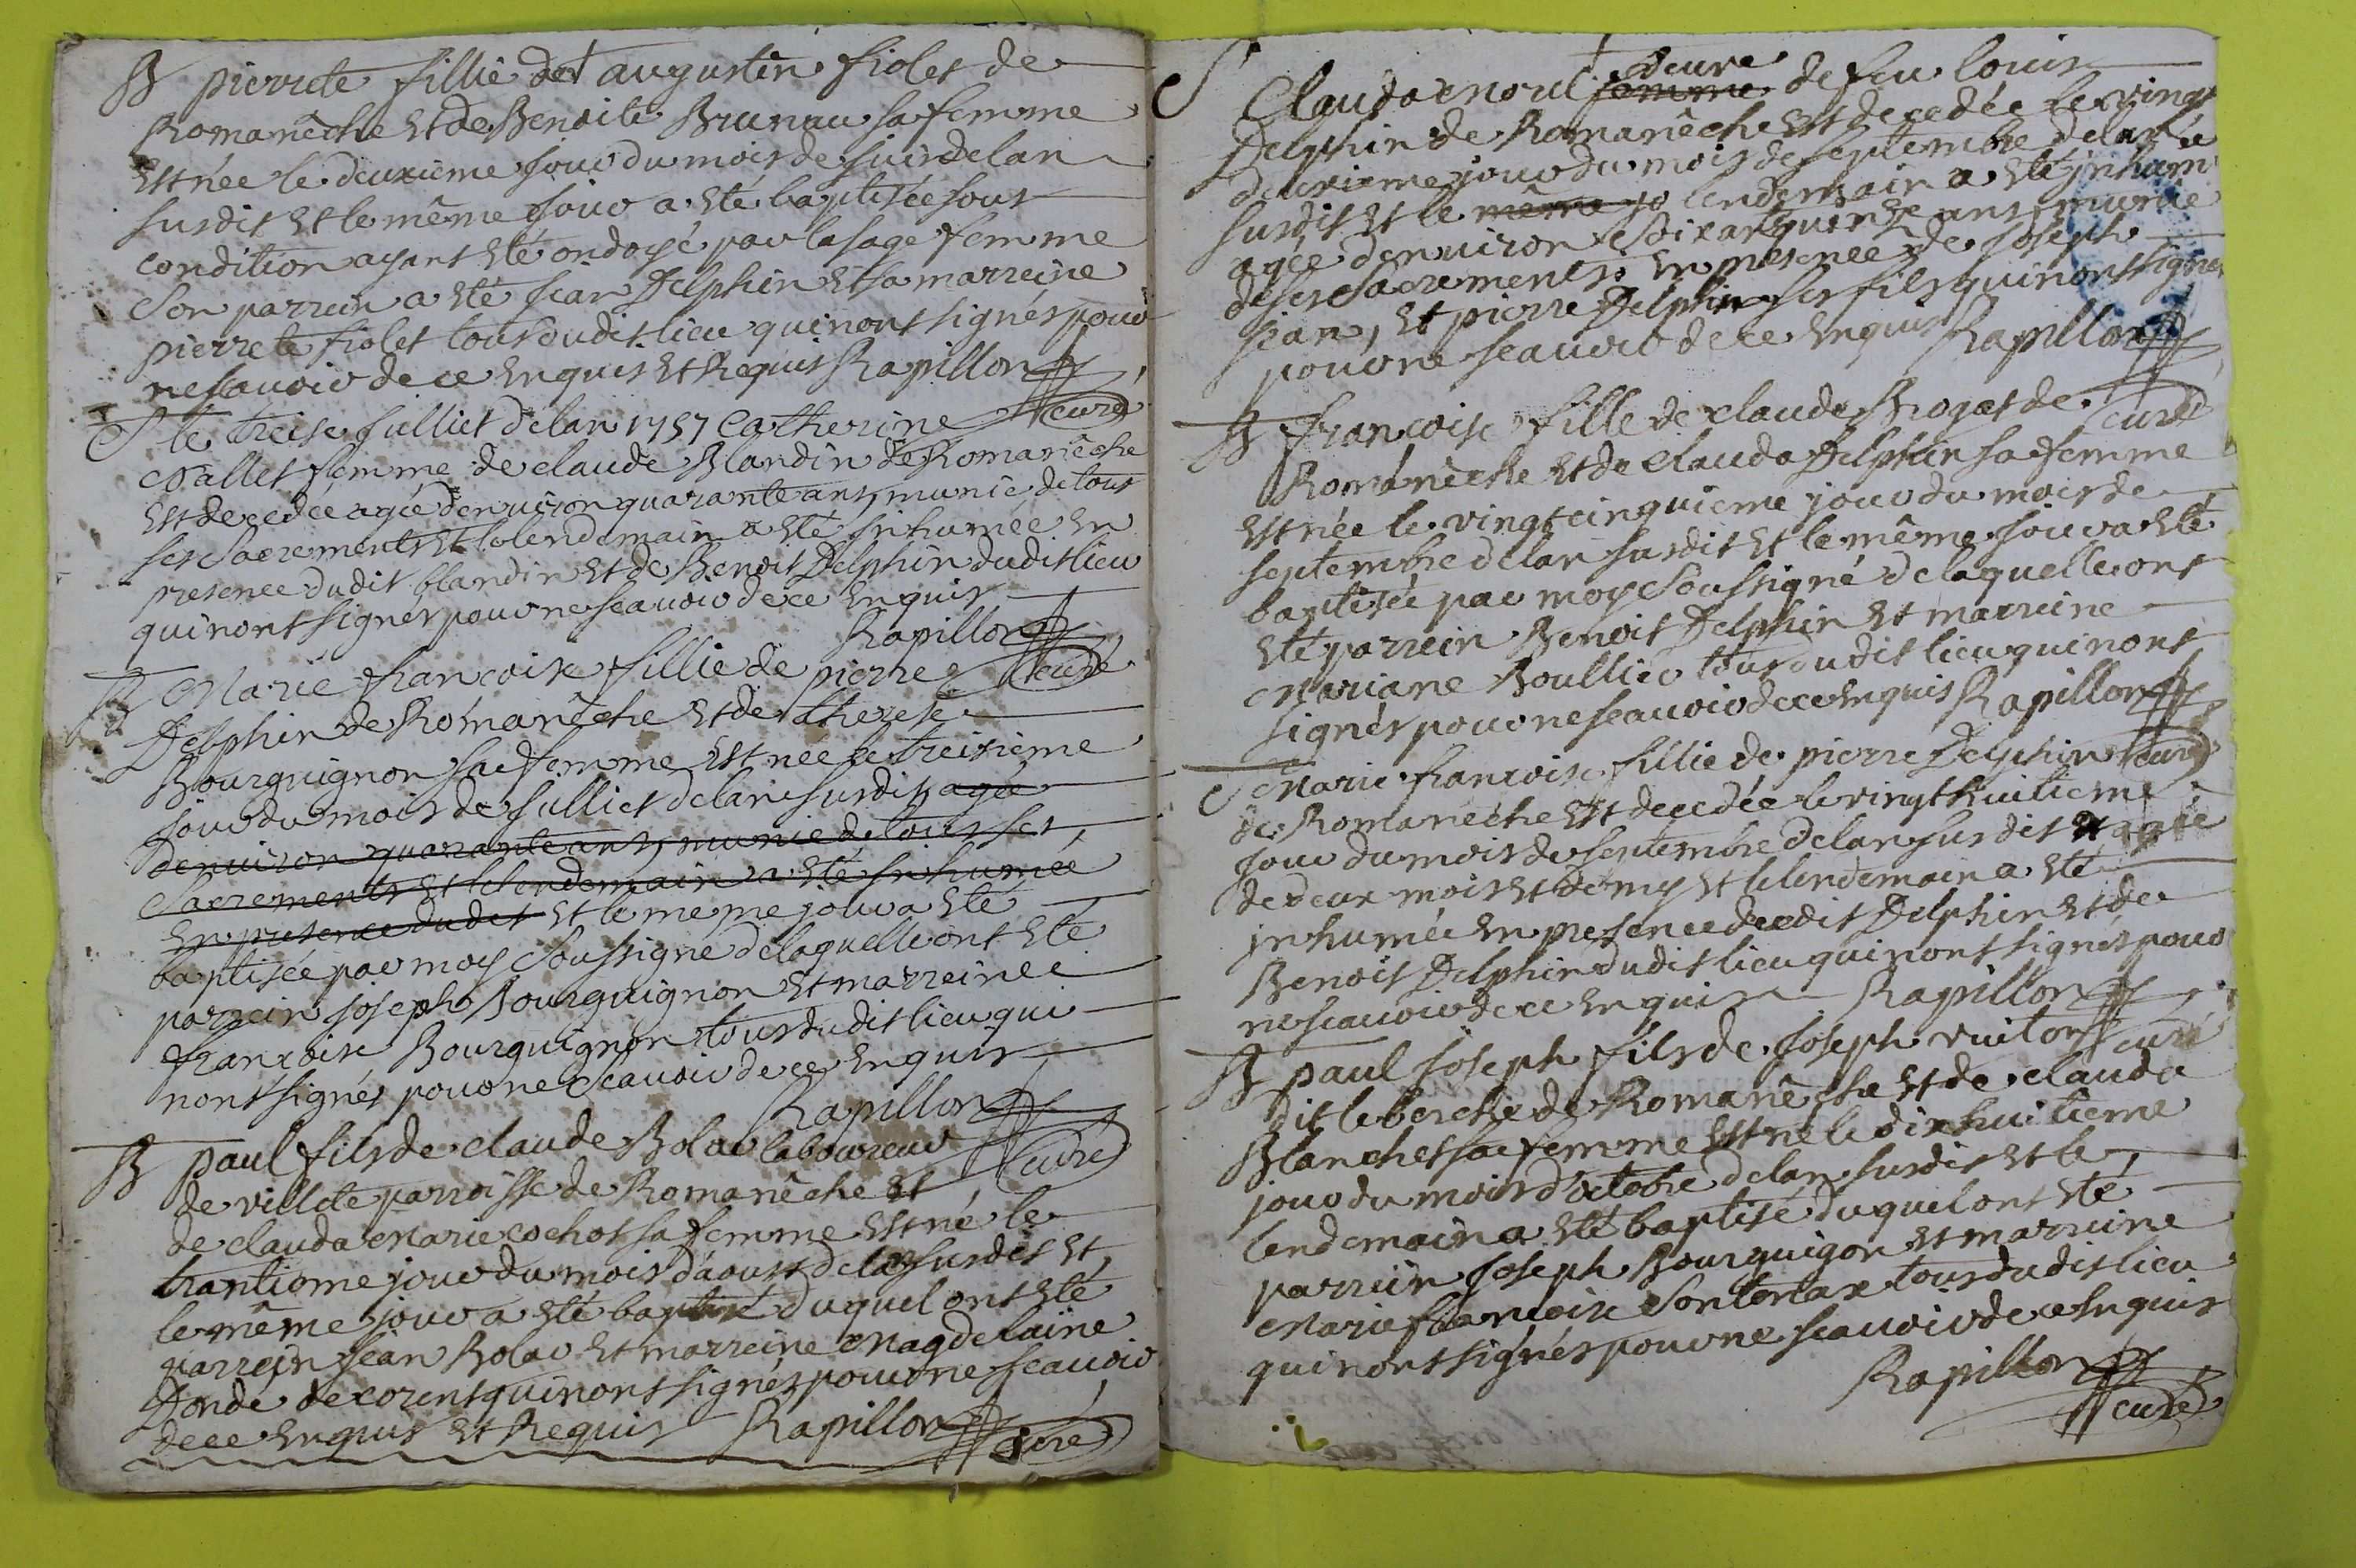 B pierrete fillie de augustin fiolet de
Romanêche et de Benoite Brunau sa femme
est née le deuxieme jour du mois de juin de lan
susdit et le même jour a eté baptisée sous
condition ayant eté ondoyé par la sage femme
son parrein a eté jean Delphin et sa marreine
pierrete fiolet tous dudit lieu qui nont signés pour
ne scavoir de ce enquis et Requis Rapillon
curé
S le treise julliet de lan 1757 Catherine
Nallet femme de claude Blandin de Romanêche
est decedée agée denviron quarante ans, munie de tous
ses sacrements et le lendemain a eté inhumée en
presence dudit blandin et de Benoit Delphin dudit lieu
qui nont signés pour ne scavoir de ce enquis
Rapillon
curé
B Marie françoise fillie de pierre
Delphin de Romanêche et de therese
Bourguignon sa femme est née le treisieme
jour du mois de julliet de lan susdit agée
denviron quarante ans, munie de tous ses
sacrements et le lendemain a eté inhumée
en presence dudit et le meme jour a eté
baptisée par moy soussigné de laquelle ont eté
parrein joseph Bourguignon et marreinee
françoise Bourguignon tous dudit lieu qui
nont signés pour ne scavoir de ce enquis
Rapillon
curé
B paul fils de claude Bolar laboureur
de villete parroisse de Romanêche et
de clauda Marie cochot sa femme est né le
trantiome jour du mois d'aoust de lan susdit et
le même jour a eté baptisé duquel ont eté
parrein jean Bolar et marreine Magdelaine
Donde de corent qui nont signés pour ne scavoir
de ce enquis et Requis Rapillon
curé
S Clauda norel femme veuve de feu louis
Delphin de Romanêche est decedée le vingt
deuxieme jour du mois de septembre de lan
susdit et le même jo lendemain a eté inhum
agée denviron soixante quinze ans, munie
de ses sacrements en presence de joseph
jean, et pierre Delphin ses fils qui nont signé
pour ne scavoir de ce enquis Rapillon
curé
B françoise fille de claude Brogat de
Romanêche et de clauda Delphin sa femme
est née le vingt cinquieme jour du mois de
septembre de lan susdit et le même jour a eté
baptisée par moy soussigné de laquelle ont
eté parrein Benoit Delphin et marreine
Mariane Boullier tous dudit lieu qui nont
signés pour ne scavoir de ce enquis Rapillon
curé
S Marie françoise fillie de pierre Delphin
de Romanêche est decedée le vingt huitieme
jour du mois de septembre de lan susdit et agée
de deux mois et demy et le lendemain a eté
inhumée en presence dudit Delphin et de
Benoit Delphin dudit lieu qui nont signés pour
ne scavoir de ce enquis Rapillon
curé
B paul joseph fils de joseph vuiton
dit leberche de Romanêche et de clauda
Blanchet sa femme est né le dix huitieme
jour du mois d'octobre de lan susdit et le
lendemain a eté baptisé duquel ont eté
parrein joseph Bourguigon et marreine
Marie françoise Sontonax tous dudit lieu
qui nont signés pour ne scavoir de ce enquis
Rapillon
curé